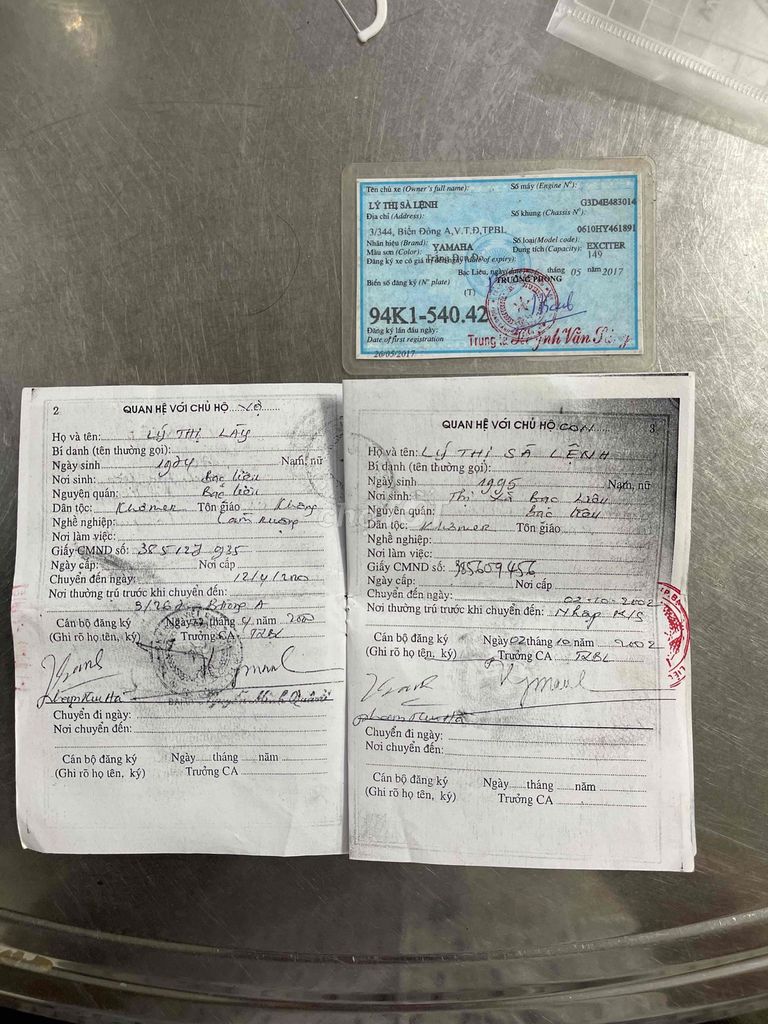 Tên chủ xe (Owner's full name): Số máy (Engine Nº):
LÝ THỊ SÀ LỆNH G3D4E483014
Địa chỉ (Address): Số khung (Chassis Nº):
3/344, Biển Đông A,V.T.Đ,TPBL 0610HY461891
Nhãn hiệu (Brand): YAMAHA Số loại(Model code): EXCITER
Màu sơn (Color): Trắng Đen Đỏ Dung tích (Capacity): 149
Đăng ký xe có giá trị of expiry):
Bạc Liêu, ngày tháng 05 năm 2017
Biển số đăng ký (Nº plate) TRƯỞNG PHÒNG
(T)
94K1-540.42
Đăng ký lần đầu ngày:
Date of first registration Trung tá Văn
26/05/2017
2 QUAN HỆ VỚI CHỦ HỘ Vợ
Họ và tên: LÝ THỊ LÂY
Bí danh (tên thường gọi):
Ngày sinh 1974 Nam, nữ
Nơi sinh: Bạc Liêu
Nguyên quán: Bạc Liêu
Dân tộc: Khơmer Tôn giáo Không
Nghề nghiệp: Làm ruộng
Nơi làm việc:
Giấy CMND số: 385127935
Ngày cấp: Nơi cấp
Chuyển đến ngày: 12/4/2000
Nơi thường trú trước khi chuyển đến:
A
Cán bộ đăng ký Ngày 12 tháng 4 năm 2000
(Ghi rõ họ tên, ký) Trưởng CA TXBL
Phạm Thu Hà
Chuyển đi ngày:
Nơi chuyển đến:
Cán bộ đăng ký Ngày tháng năm
(Ghi rõ họ tên, ký) Trưởng CA
QUAN HỆ VỚI CHỦ HỘ CON 3
Họ và tên: LÝ THỊ SÀ LỆNH
Bí danh (tên thường gọi):
Ngày sinh 1995 Nam, nữ
Nơi sinh: Thị Xã Bạc Liêu
Nguyên quán: Bạc Liêu
Dân tộc: Khơmer Tôn giáo
Nghề nghiệp:
Nơi làm việc:
Giấy CMND số: 385609456
Ngày cấp: Nơi cấp
Chuyển đến ngày: 02-10-2002
Nơi thường trú trước khi chuyển đến: Nhập K/S
Cán bộ đăng ký Ngày 02 tháng 10 năm 2002
(Ghi rõ họ tên, ký) Trưởng CA TXBL
Phạm Thu Hà
Chuyển đi ngày:
Nơi chuyển đến:
Cán bộ đăng ký Ngày tháng năm
(Ghi rõ họ tên, ký) Trưởng CA